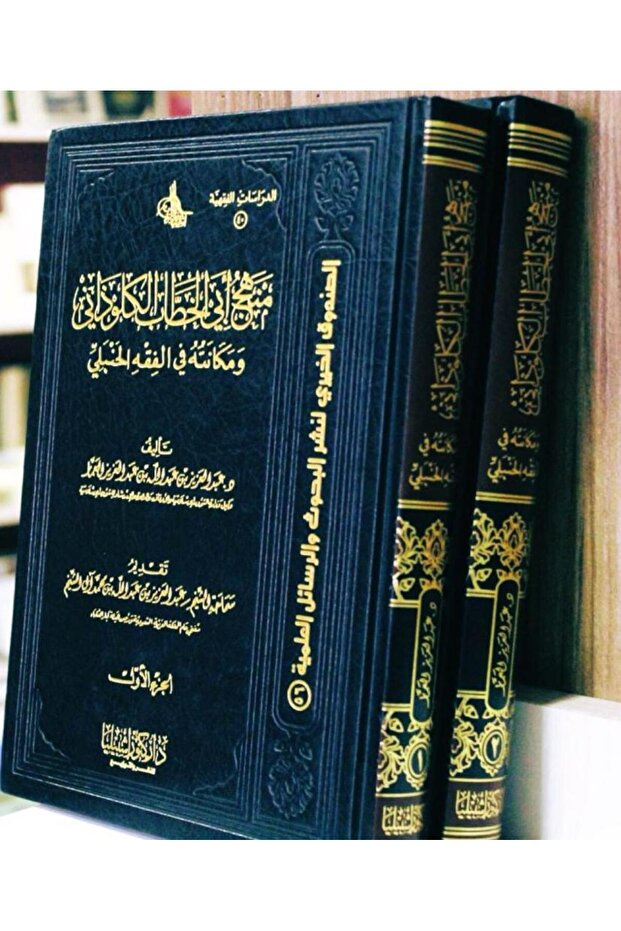 الدراسات الفقهية
٤٠
منهج أبي الخطاب الكلوذاني
ومكانته في الفقه الحنبلي
تأليف
د. عبد العزيز بن عبد الله بن عبد العزيز
تقديم
سماحة الشيخ عبد العزيز بن عبد الله بن محمد آل الشيخ
الجزء الأول
دار كنوز إشبيليا
للنشر والتوزيع
الصندوق الخيري لنشر البحوث والرسائل العلمية ٥٦
منهج أبي الخطاب الكلوذاني
ومكانته في
الفقه الحنبلي
د. عبد العزيز
١
كنوز إشبيليا
منهج أبي الخطاب الكلوذاني
ومكانته في
الفقه الحنبلي
د. عبد العزيز
٢
كنوز إشبيليا